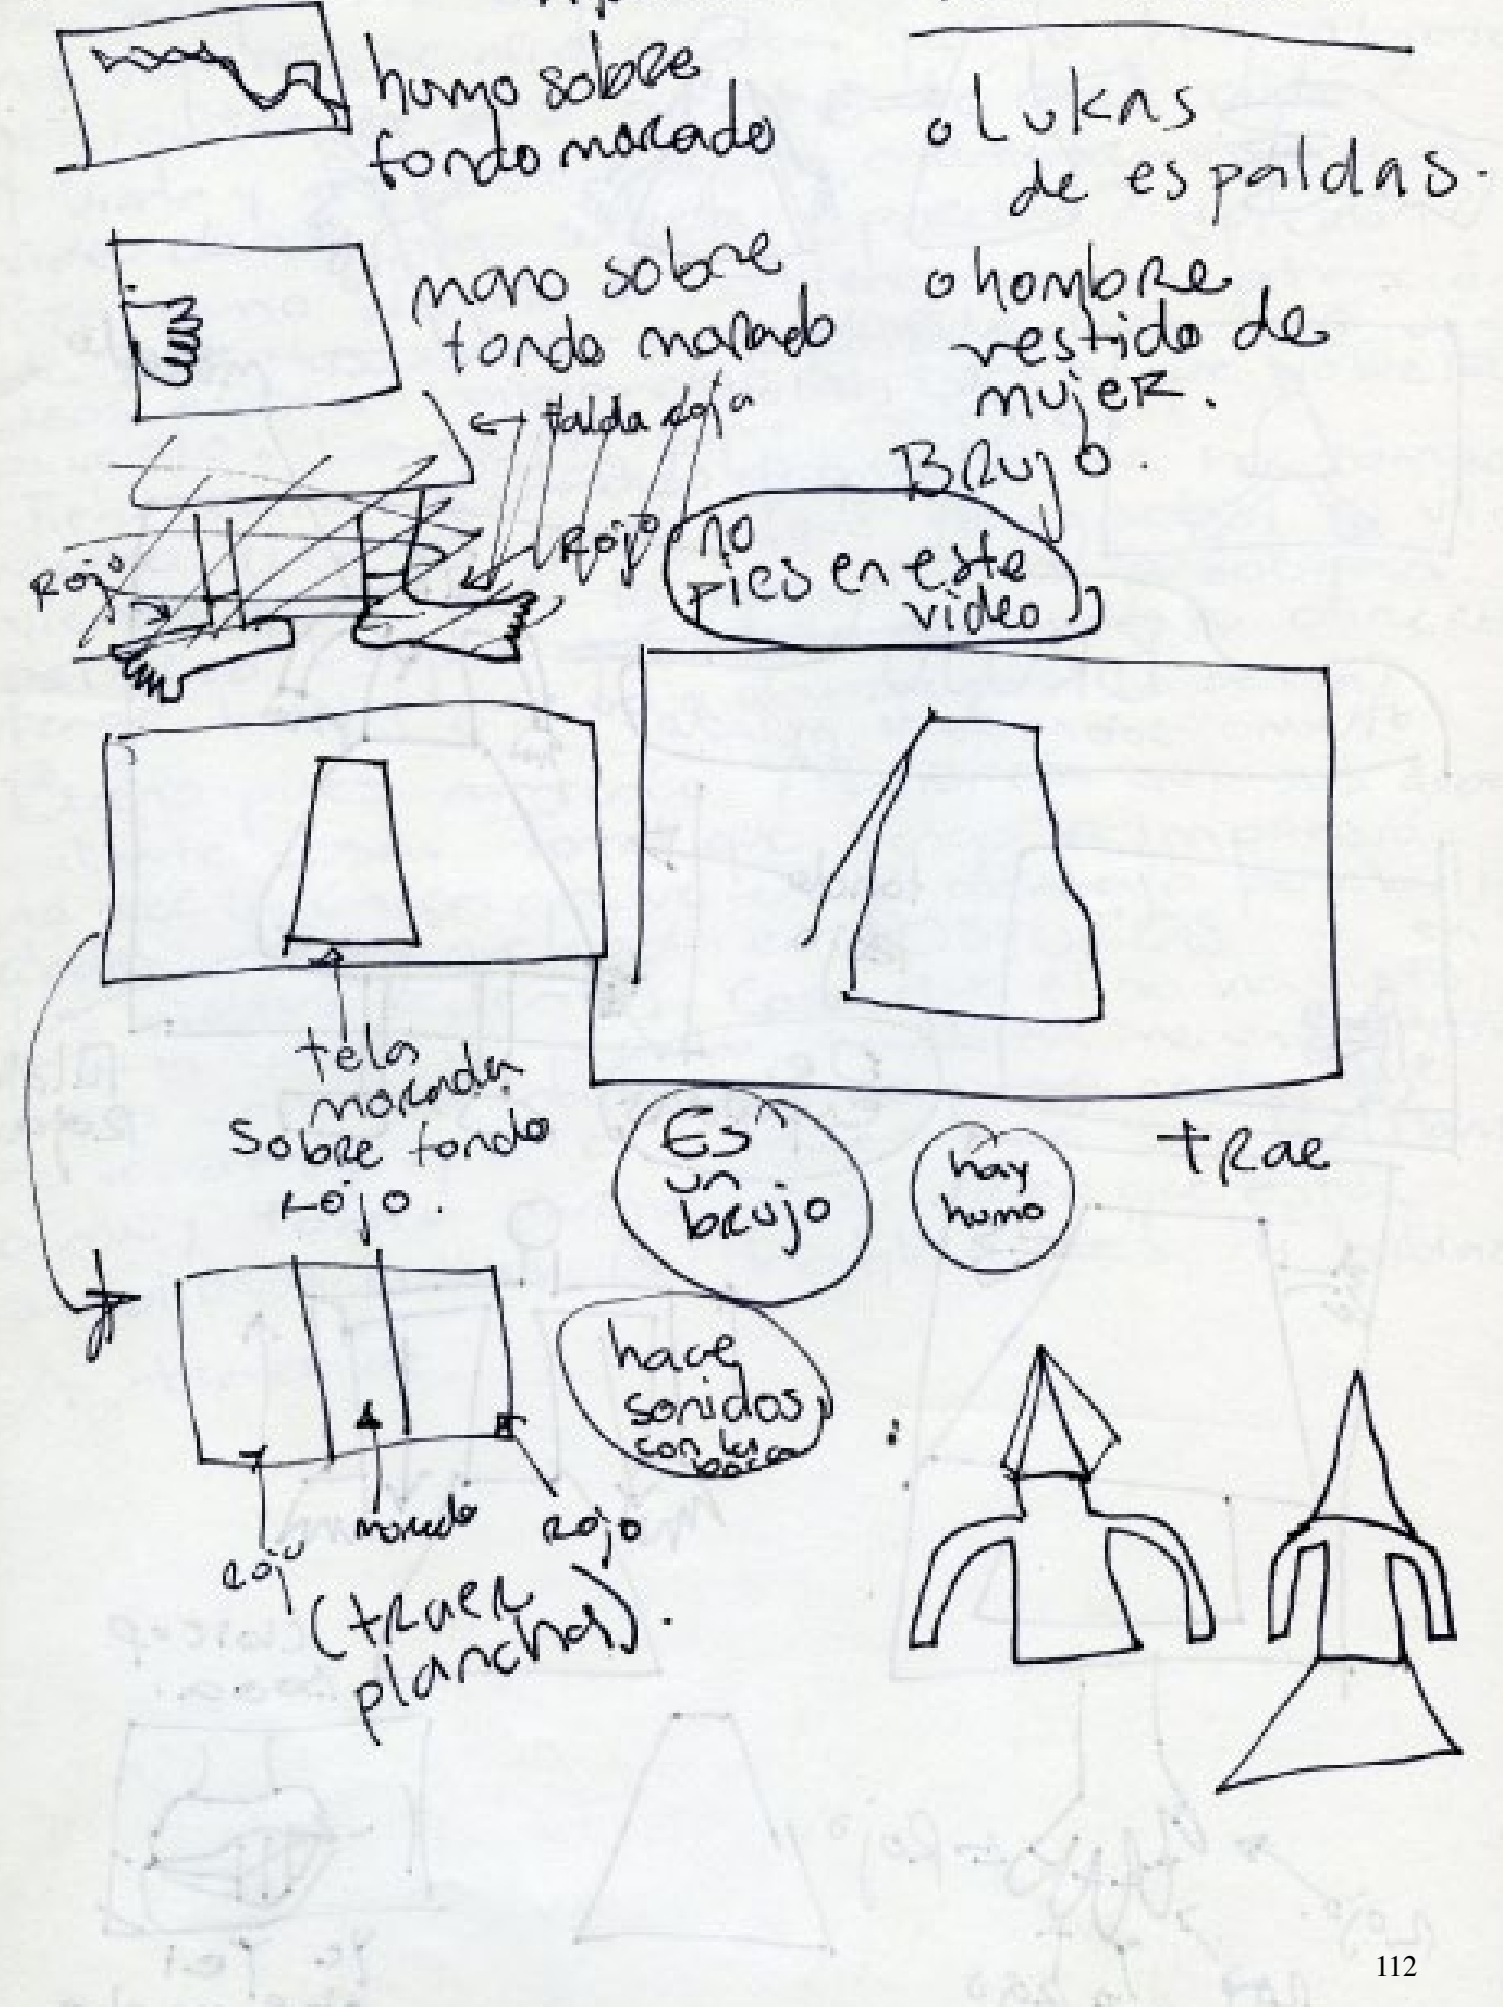 humo sobre
fondo morado
o Lukas
de espaldas.
mano sobre
fondo morado
o hombre
vestido de
mujer.
BRUJO.
← falda roja
Rojo
Rojo
no
pies en este
video
tela
morada
sobre fondo
rojo.
Es
un
brujo
hay
humo
trae
hace
sonidos
con la
boca
rojo
morado
rojo
(traer
plancha).
112